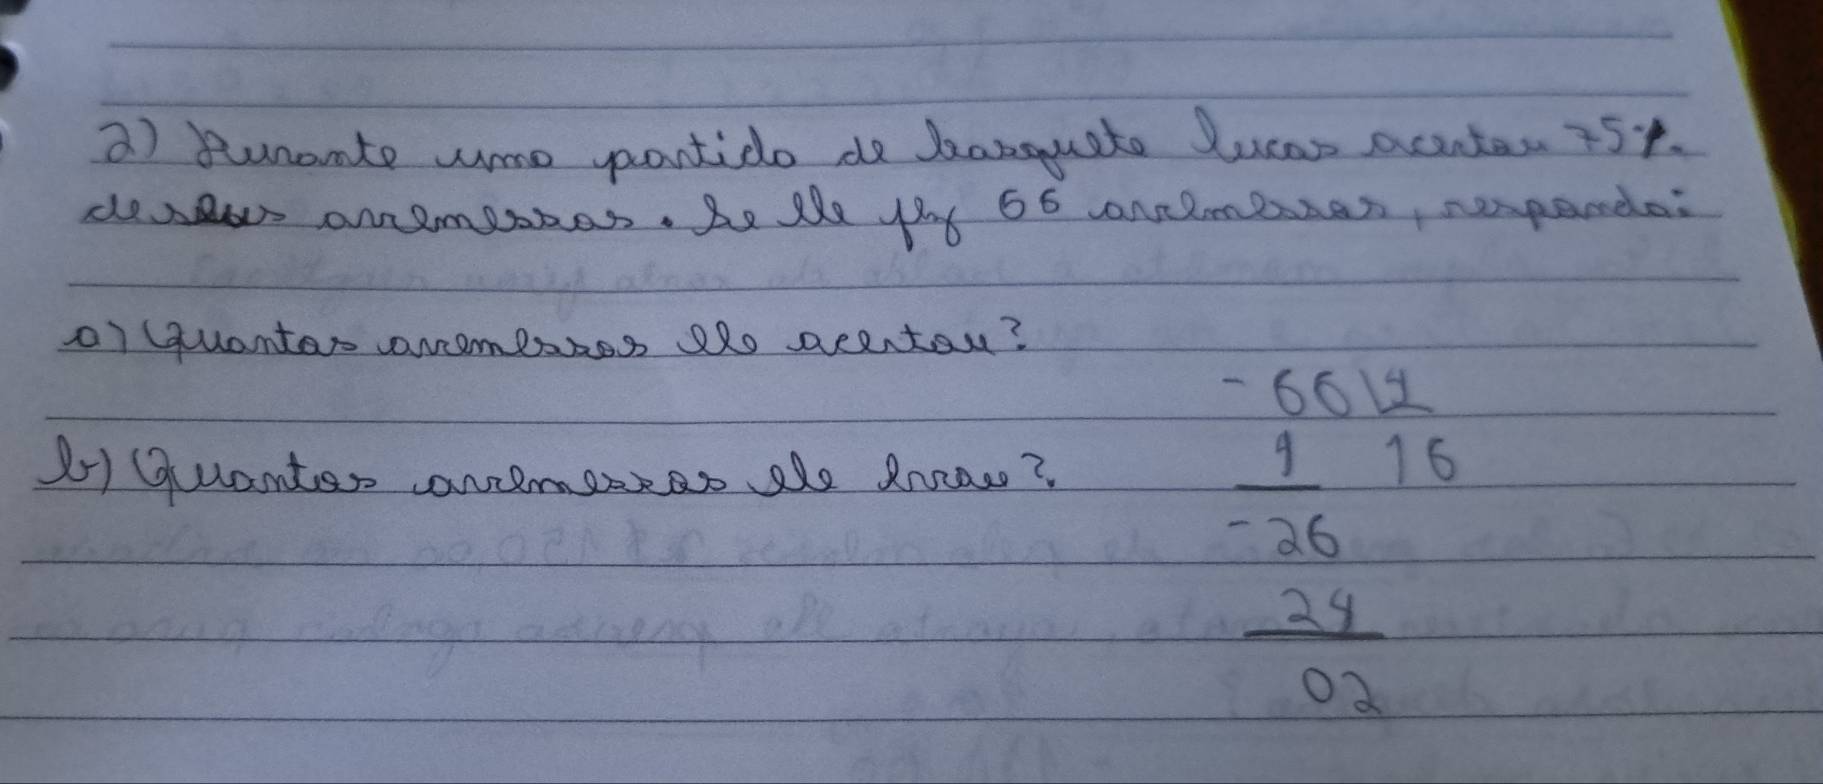 2) Durante uma partida de basquete lucas acertou 75%
de seus arremessos. Se ele fez 66 arremessos, responda:
a) Quantos arremessos ele acertou?
b) Quantos arremessos ele errou?
- 66 4
4 16
- 26
24
02